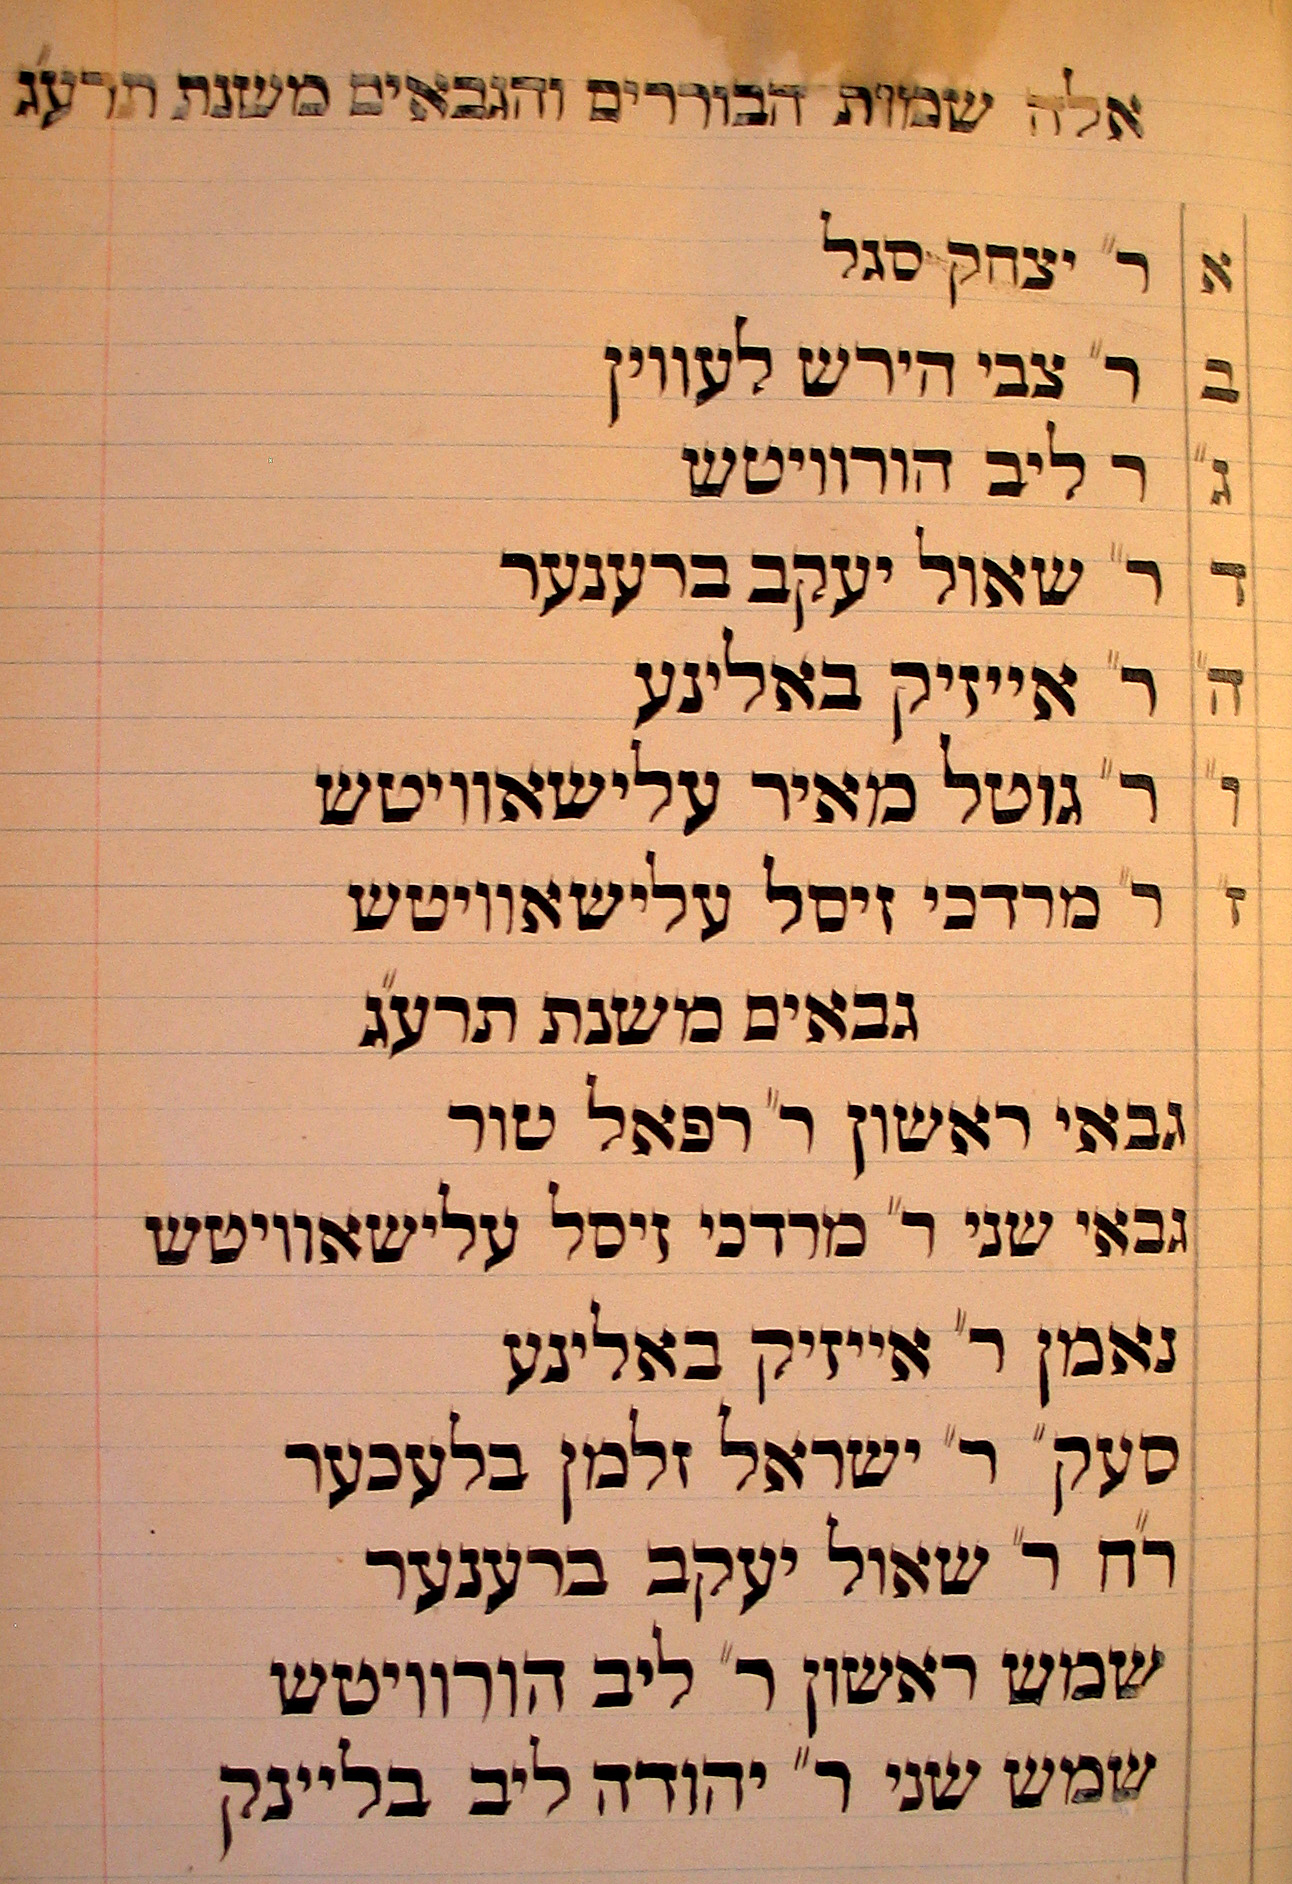 אלה שמות הבוררים והגבאים משנת תרע״ג
א ר״ יצחק סגל
ב ר״ צבי הירש לעווין
ג״ ר ליב הורוויטש
ד ר״ שאול יעקב ברענער
ה״ ר״ אייזיק באלינע
ו״ ר״ גוטל מאיר עלישאוויטש
ז״ ר״ מרדכי זיסל עלישאוויטש
גבאים משנת תרע״ג
גבאי ראשון ר״ רפאל טור
גבאי שני ר״ מרדכי זיסל עלישאוויטש
נאמן ר״ אייזיק באלינע
סעק״ ר״ ישראל זלמן בלעכער
ר״ח ר״ שאול יעקב ברענער
שמש ראשון ר״ ליב הורוויטש
שמש שני ר״ יהודה ליב בליינק